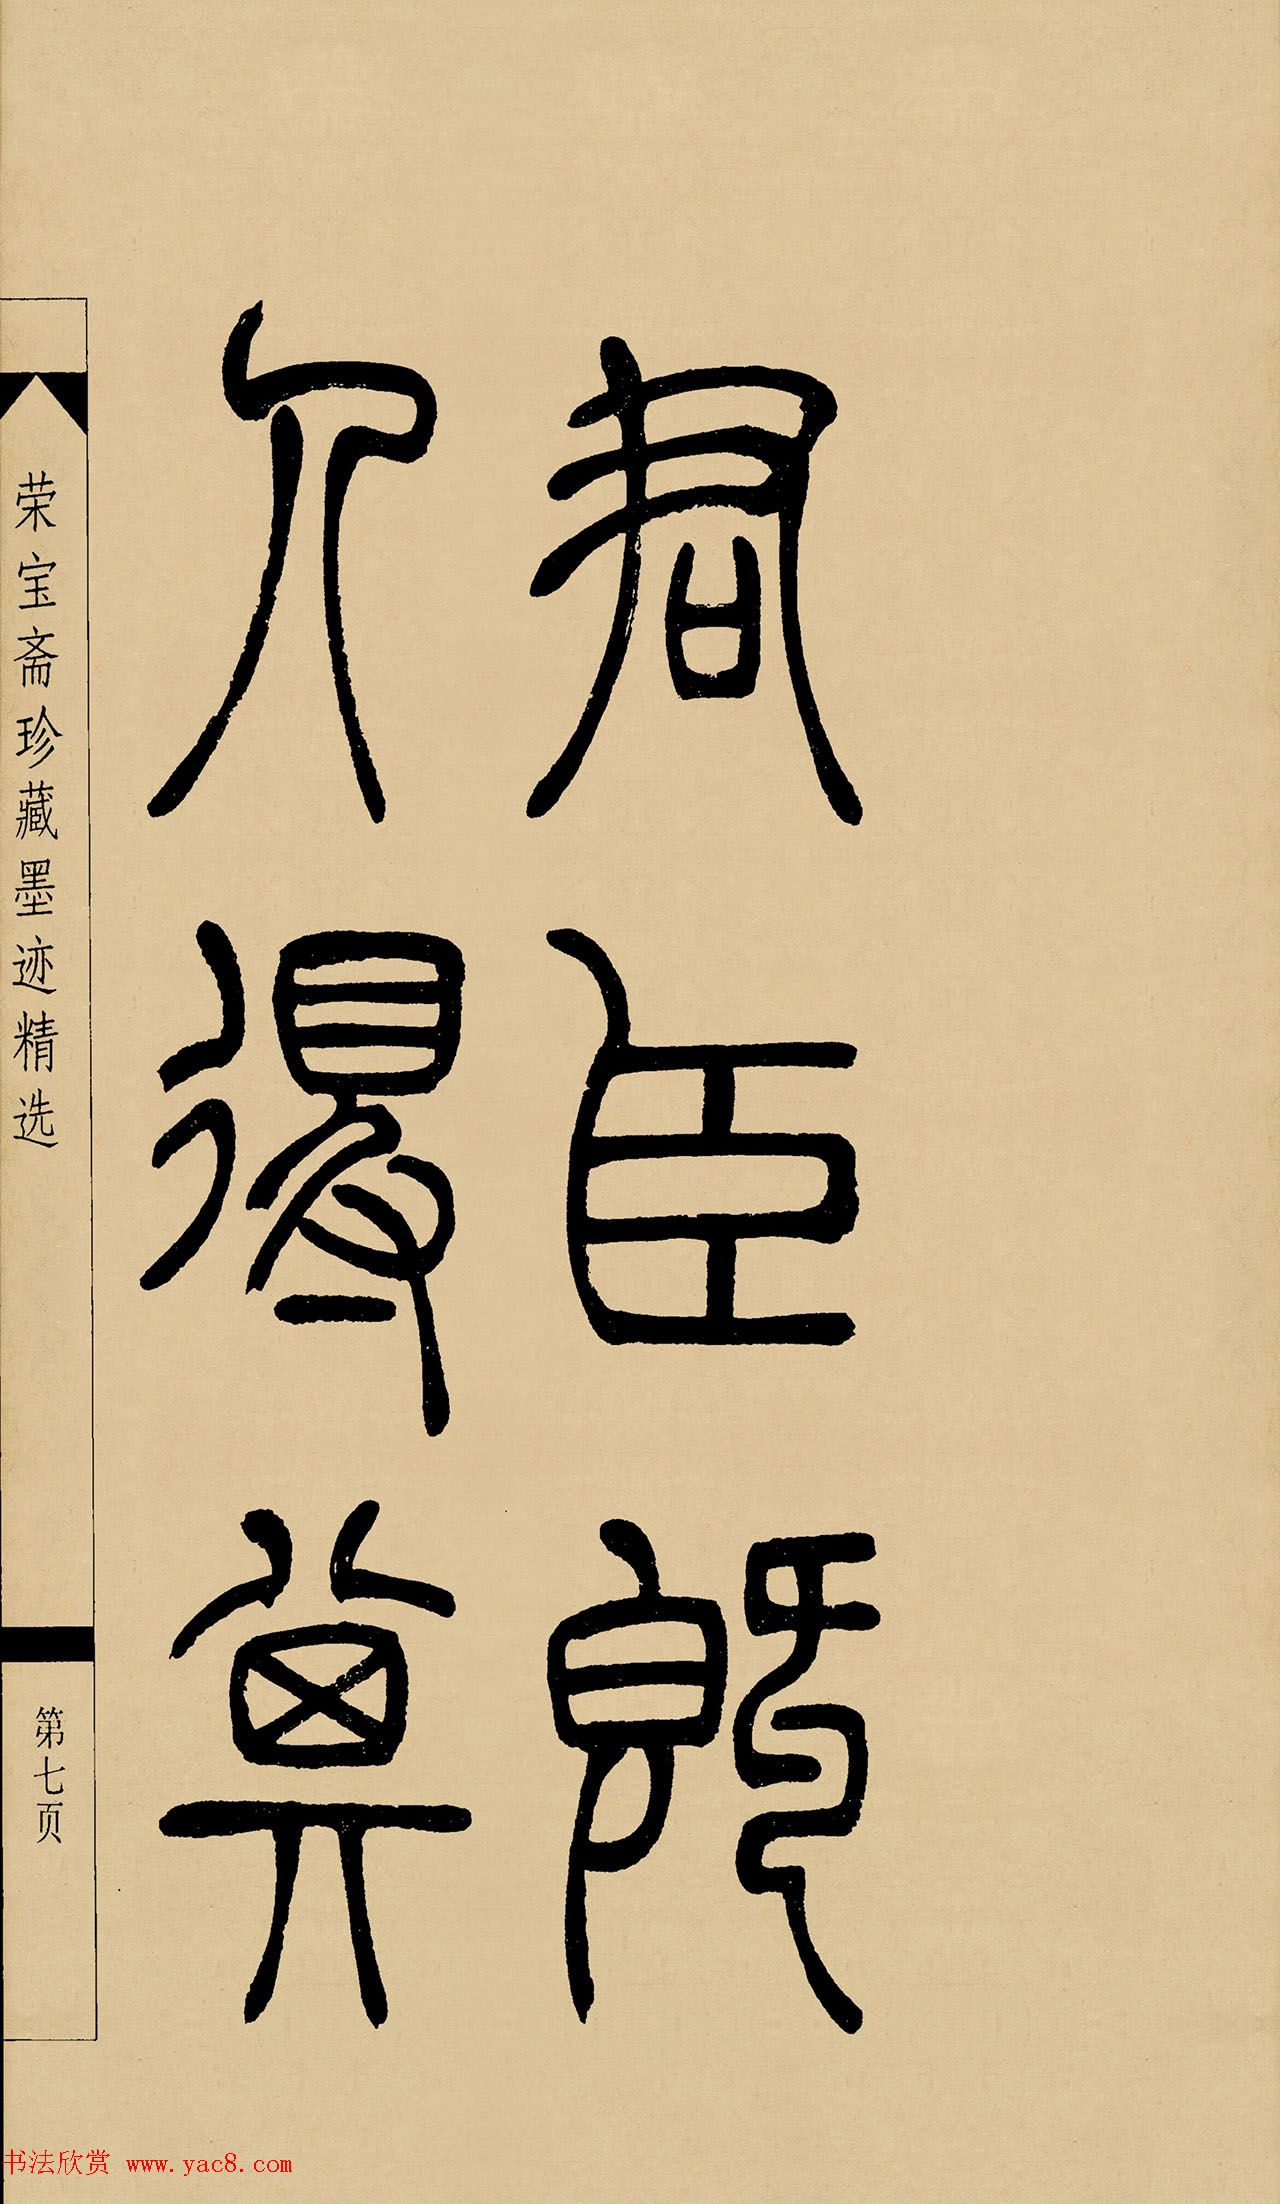 君臣既
得其
荣宝斋珍藏墨迹精选
第七页
书法欣赏 www.yac8.com